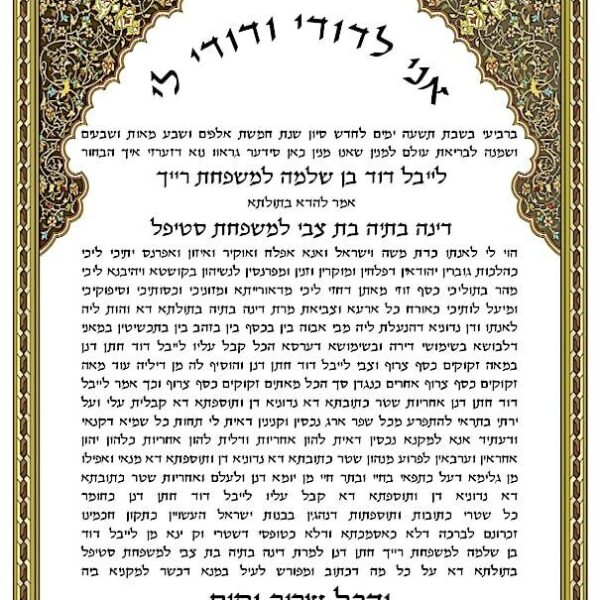 אני לדודי ודודי לי
ברביעי בשבת תשעה ימים לחדש סיון שנת חמשת אלפים ושבע מאות ושבעים
ושמנה לבריאת עולם למנין שאנו מנין כאן סידער גראוו נוא דזערזי איך הבחור
לייבל דוד בן שלמה למשפחת רייך
אמר להדא בתולתא
דינה בתיה בת צבי למשפחת סטיפל
הוי לי לאנתו כדת משה וישראל ואנא אפלח ואוקיר ואיזון ואפרנס יתיכי ליכי
כהלכות גוברין יהודאין דפלחין ומוקרין וזנין ומפרנסין לנשיהון בקושטא ויהיבנא ליכי
מהר בתוליכי כסף זוזי מאתן דחזי ליכי מדאורייתא ומזוניכי וכסותיכי וסיפוקיכי
ומיעל לותיכי כאורח כל ארעא וצביאת מרת דינה בתיה בתולתא דא והות ליה
לאנתו ודן נדוניא דהנעלת ליה מבי אבוה בין בכסף בין בזהב בין בתכשיטין במאני
דלבושא בשימושי דירה ובשימושא דערסא הכל קבל עליו לייבל דוד חתן דנן
במאה זקוקים כסף צרוף וצבי לייבל דוד חתן דנן והוסיף לה מן דיליה עוד מאה
זקוקים כסף צרוף אחרים כנגדן סך הכל מאתים זקוקים כסף צרוף וכך אמר לייבל
דוד חתן דנן אחריות שטר כתובתא דא נדוניא דן ותוספתא דא קבלית עלי ועל
ירתי בתראי להתפרע מכל שפר ארג נכסין וקנינין דאית לי תחות כל שמיא דקנאי
ודעתיד אנא למקנא נכסין דאית להון אחריות ודלית להון אחריות כלהון יהון
אחראין וערבאין לפרוע מנהון שטר כתובתא דא נדוניא דן ותוספתא דא מנאי ואפילו
מן גלימא דעל כתפאי בחיי ובתר חיי מן יומא דנן ולעלם ואחריות שטר כתובתא
דא נדוניא דן ותוספתא דא קבל עליו לייבל דוד חתן דנן כחומר
כל שטרי כתובות ותוספתות דנהגין בבנות ישראל העשויין כתקון חכמינו
זכרונם לברכה דלא כאסמכתא ודלא כטופסי דשטרי וק ינא מן לייבל דוד
בן שלמה למשפחת רייך חתן דנן למרת דינה בתיה בת צבי למשפחת סטיפל
בתולתא דא על כל מה דכתוב ומפורש לעיל במנא דכשר למקניא ביה